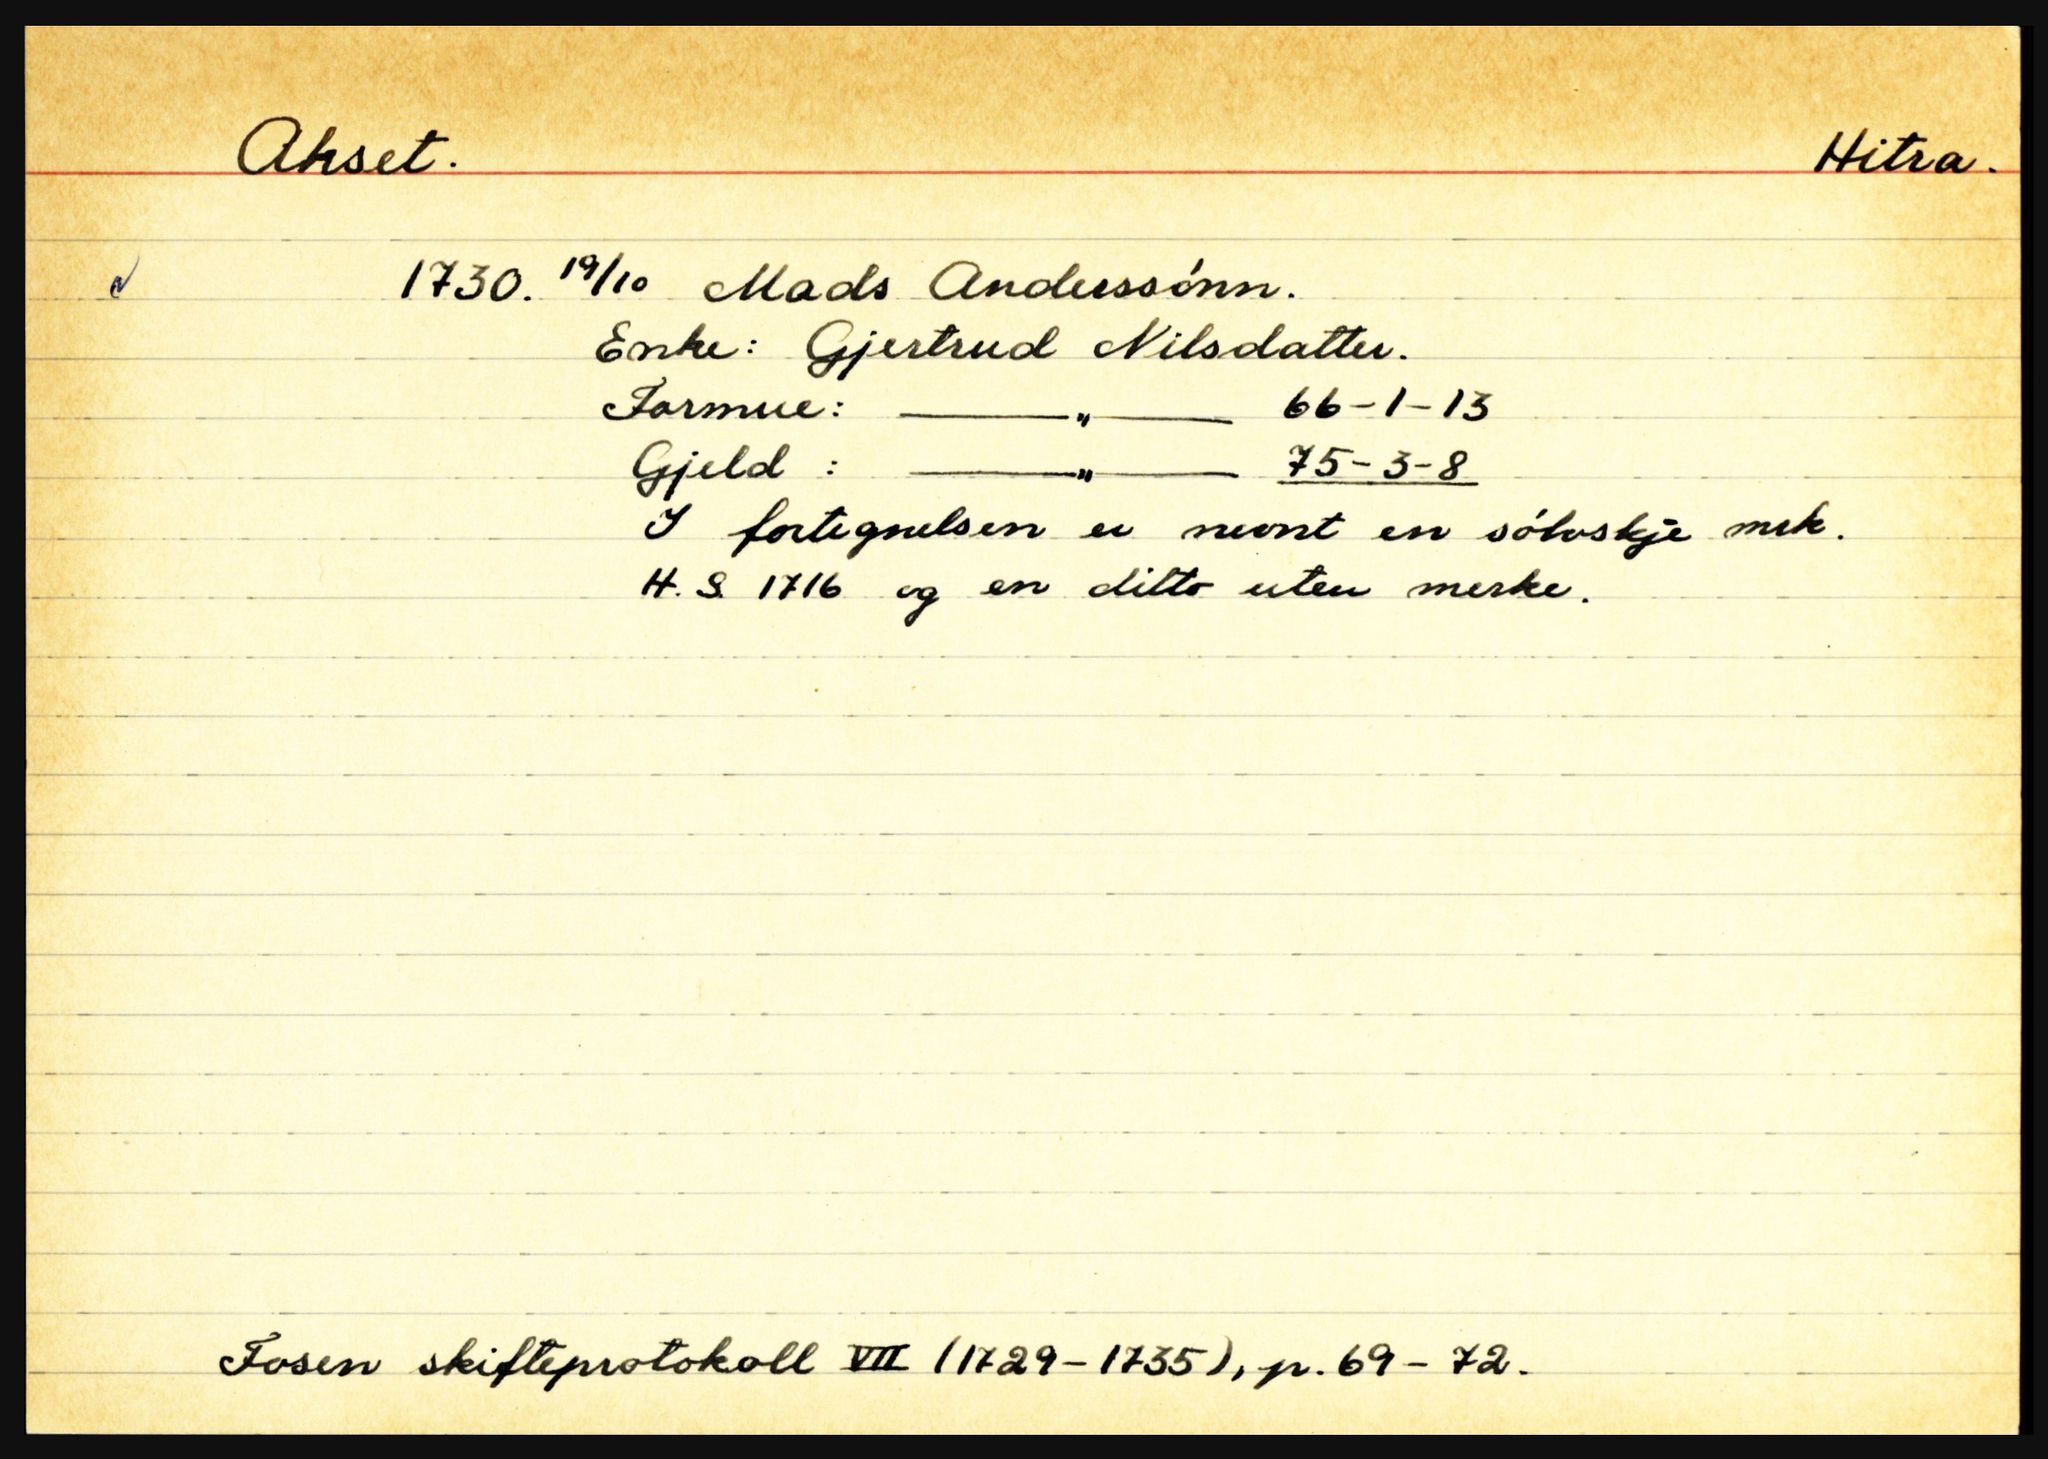 Akset. Hitra.
1730. 19/10 Mads Anderssónn.
Enke: Gjertrud Nilsdatter.
Formue: ——„—— 66-1-13
Gjeld : ——„—— 75-3-8
I fortegnelsen er nevnt en sólvskje mrk.
H.S. 1716 og en ditto uten merke.
Fosen skifteprotokoll VII (1729-1735), p. 69-72.